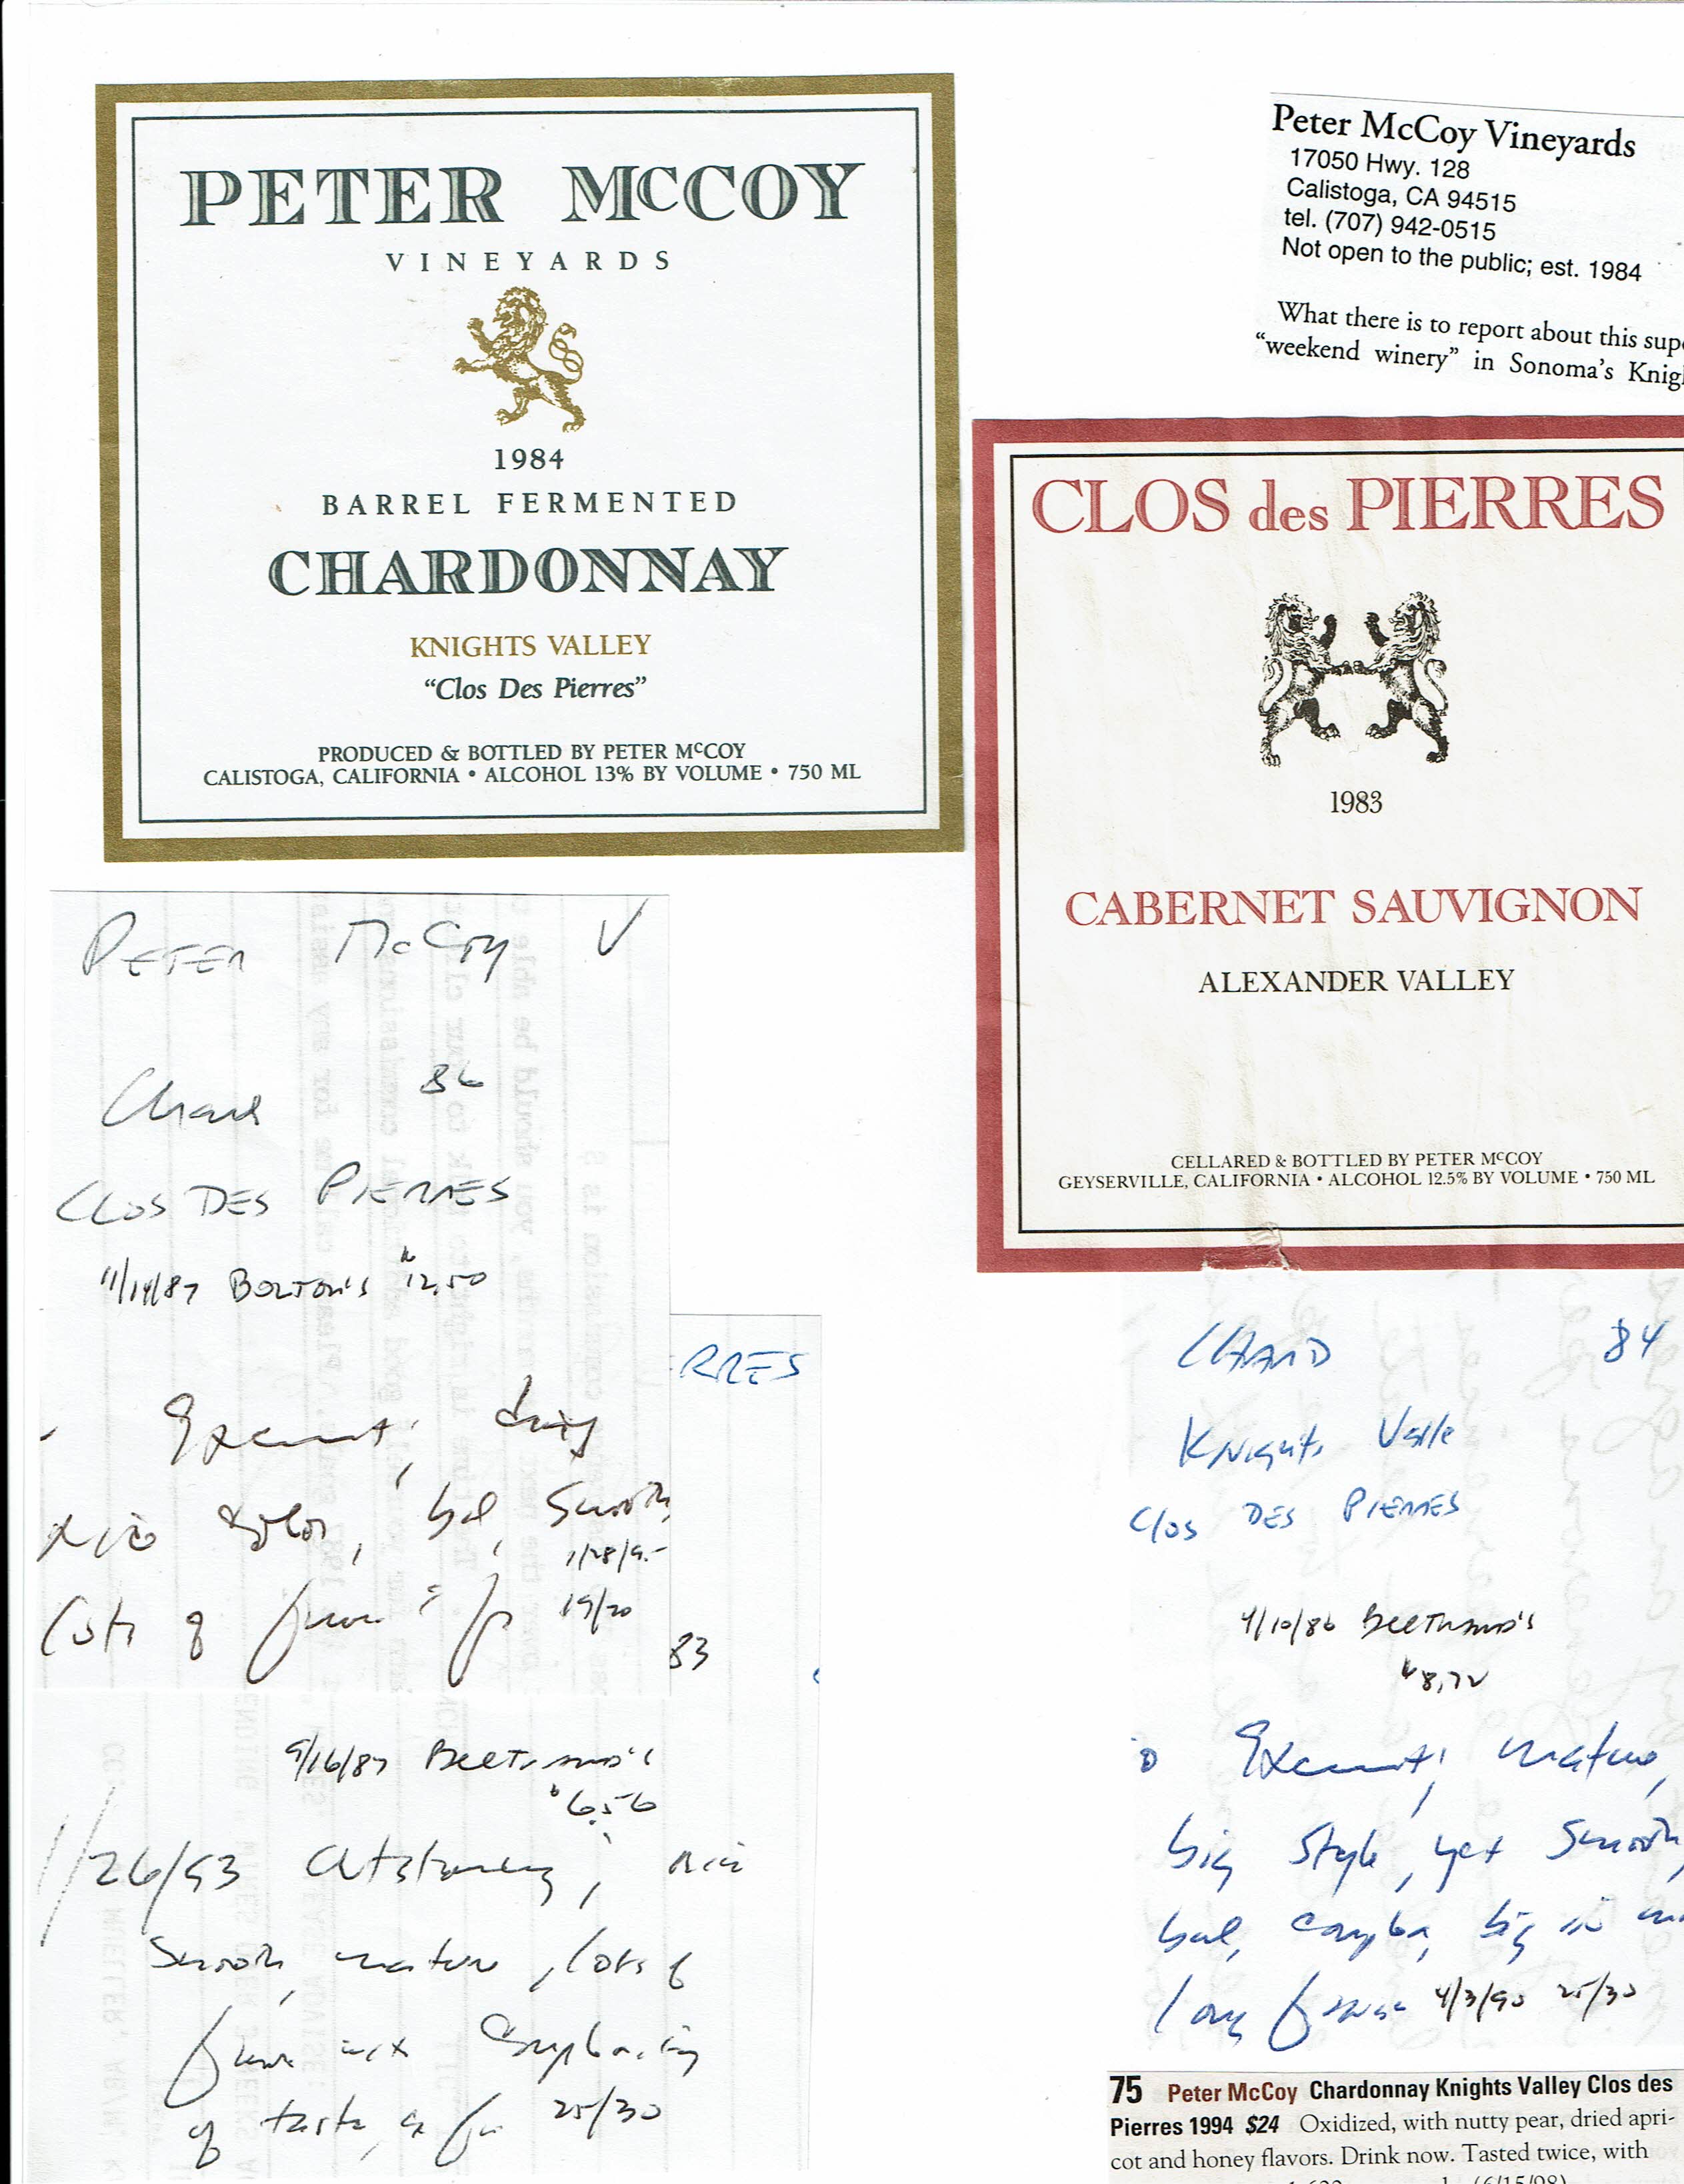 PETER McCOY
VINEYARDS
1984
BARREL FERMENTED
CHARDONNAY
KNIGHTS VALLEY
“Clos Des Pierres”
PRODUCED & BOTTLED BY PETER McCOY
CALISTOGA, CALIFORNIA • ALCOHOL 13% BY VOLUME • 750 ML
Peter McCoy Vineyards
17050 Hwy. 128
Calistoga, CA 94515
tel. (707) 942-0515
Not open to the public; est. 1984
What there is to report about this
“weekend winery” in Sonoma’s
CLOS des PIERRES
1983
CABERNET SAUVIGNON
ALEXANDER VALLEY
CELLARED & BOTTLED BY PETER McCOY
GEYSERVILLE, CALIFORNIA • ALCOHOL 12.5% BY VOLUME • 750 ML
PETER McCoy V
Chard 86
CLOS DES PIERRES
11/14/87 $12.50
RRES
bal, Smooth
Lots of
19/20
83
9/16/87
$6.56
1/26/93 Outstanding,
Smooth, mature, lots of
of taste, 25/30
CHARD 84
Knights Valle
Clos DES PIERRES
4/10/86
$8.72
mature,
big style, yet Smooth,
bal, complex, big
long 4/3/90 25/30
75 Peter McCoy Chardonnay Knights Valley Clos des
Pierres 1994 $24 Oxidized, with nutty pear, dried apri-
cot and honey flavors. Drink now. Tasted twice, with
(6/15/98)